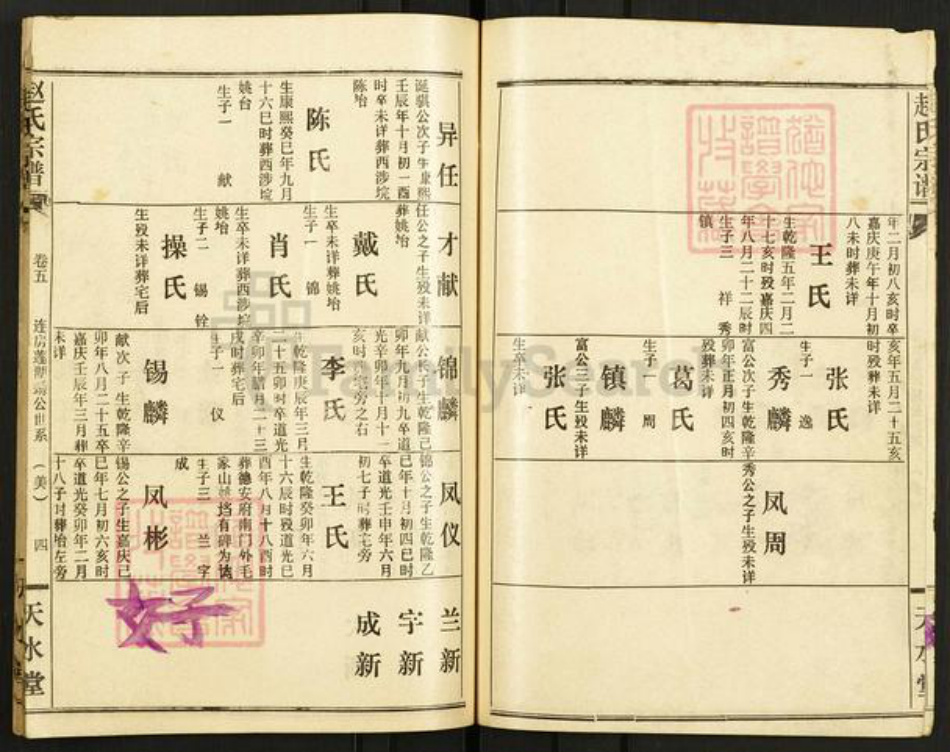 赵氏宗谱
年二月初八亥时卒
嘉庆庚午年十月初
八未时葬未详
王氏
生乾隆五年二月二
十七亥时殁嘉庆四
年八月二十二辰时
生子三 祥 秀
镇
亥年五月二十五亥
时殁葬未详
张氏
生子一 逸
秀麟
富公次子生乾隆辛
卯年正月初四亥时
殁葬未详
葛氏
生子一 周
镇麟
富公三子生殁未详
张氏
生卒未详
秀公之子生殁未详
凤周
天水堂
异任
诞骐公次子生康熙
壬辰年十月初一酉
时卒未详葬西涉垸
陈坮
陈氏
生康熙癸巳年九月
十六巳时葬西涉垸
姚台
生子一 献
才献
任公之子生殁未详
葬姚坮
戴氏
生卒未详葬姚坮
生子一 锦
肖氏
生卒未详葬西涉垸
姚坮
生子二 锡 铨
操氏
生殁未详葬宅后
锦麟
献公长子生乾隆己
卯年九月初九卒道
光辛卯年十月十一
亥时葬宅旁之右
李氏
生乾隆庚辰年三月
二十五卯时卒道光
辛卯年腊月二十三
戌时葬宅后
生子一 仪
锡麟
献次子生乾隆辛
卯年八月二十五卒
嘉庆壬辰年三月葬
未详
凤仪
锦公之子生乾隆乙
巳年十月初四巳时
卒道光壬申年六月
初七子时葬宅旁
王氏
生乾隆癸卯年六月
十六辰时殁道光巳
酉年八月十八酉时
葬德安府南门外毛
家山姚垱有碑为谪
生子三 兰 字
成
凤彬
锡公之子生嘉庆己
巳年七月初六亥时
卒道光癸卯年二月
十八子时葬坮左旁
兰新
字新
成新
好子
赵氏宗谱
卷五
四
天水堂
FamilySearch